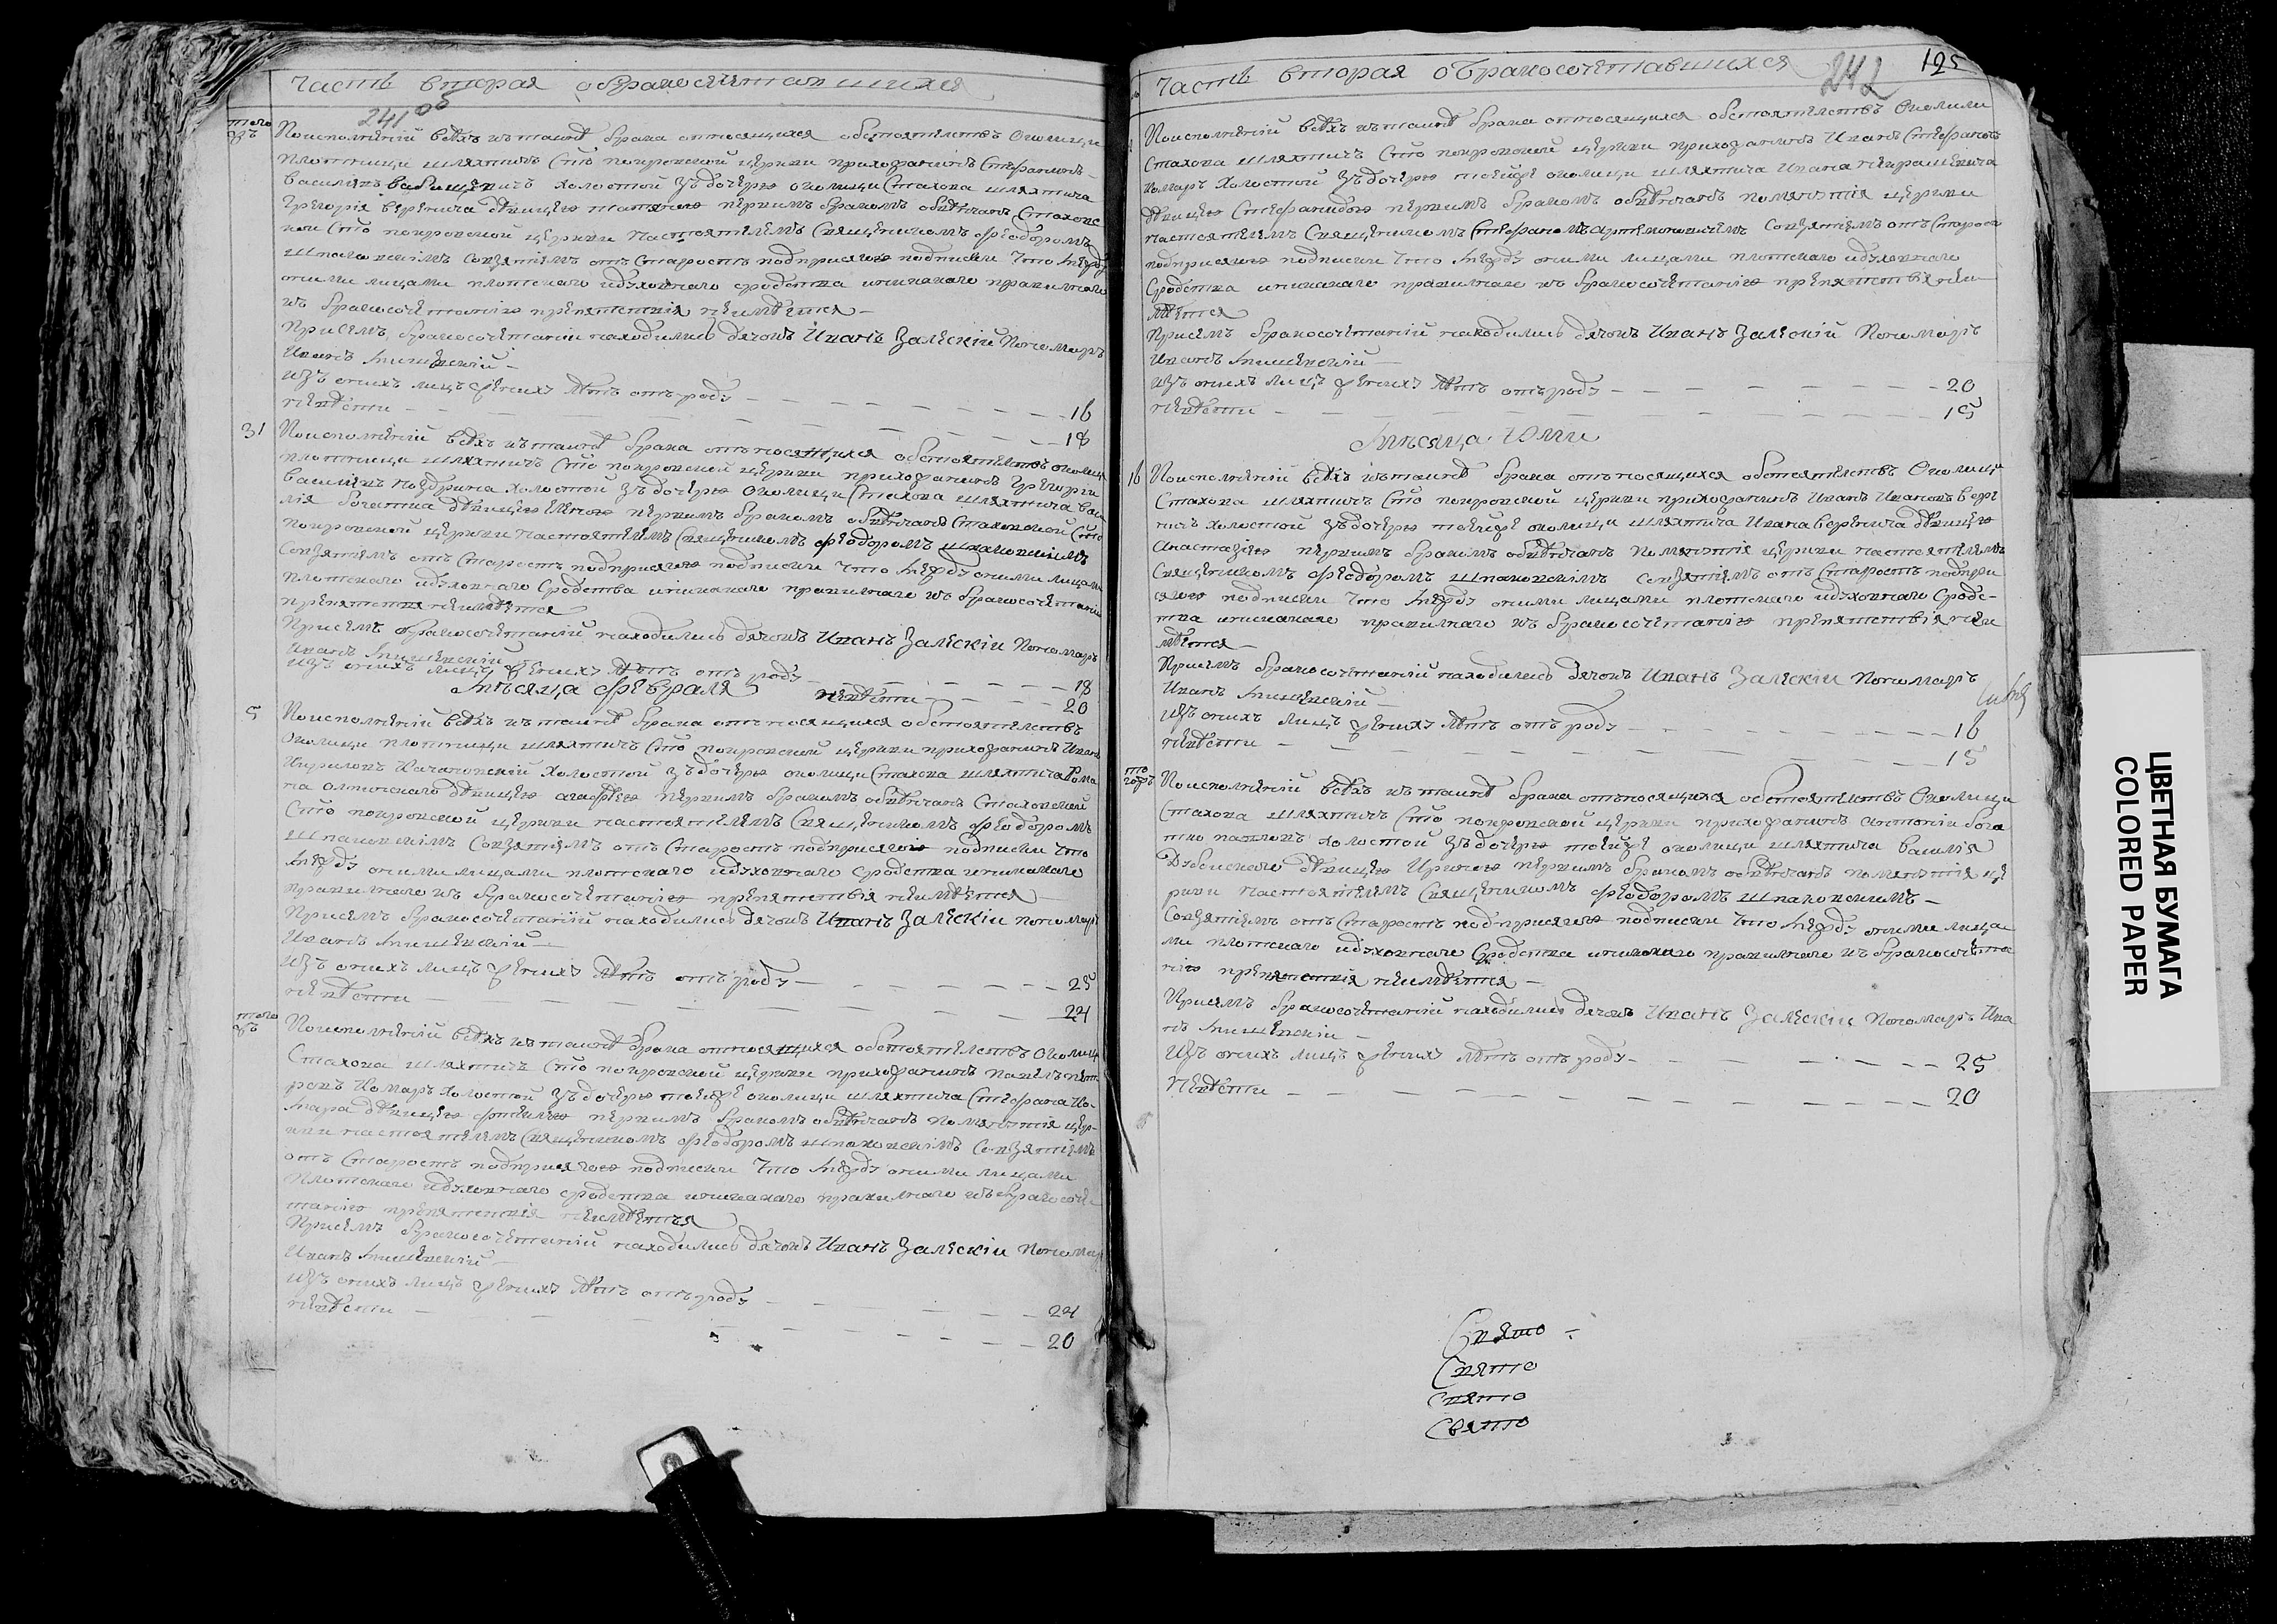 Часть вторая о бракосочетавшихся
241 об
того
жъ
Поисполнений всѣхъ къ таинѣ брака относящихся обстоятелствъ Околици
Плотници шляхтичъ Сто покровской церкви прихожанинъ Стефанъ
Василевъ Бабицкевичъ холостой зъ дочерью околици Стахова шляхтича
Григория Веренича дѣвицею Татяною первимъ бракомъ обвѣнчанъ Стаховс
кой Сто покровской церкви настоятелемъ Священикомъ Феодоромъ
Шпаковскимъ Совзятіемъ отъ Старостъ подприсягою подписки что между
оними лицами плотскаго идуховнаго сродства иникакого правилнаго
къ бракосочетанію препятствия неимѣется —
Присемъ бракосочетании находились дячокъ Иванъ Залѣскій Пономаръ
Иванъ
Изъ онихъ лицъ жениху лѣтъ отъ роду — 16
невѣсти — 18
31
Поисполнений всѣхъ къ таинѣ брака отъносящихся обстоятелствъ околици
плотници шляхтичъ Сто покровской церкви прихожанинъ Григорий
Василевъ Поздрина холостой зъ дочерью Околици Стахова шляхтича Васи
лія дѣвицею первимъ бракомъ обвѣнчанъ Стаховской Сто
покровской церкви настоятелемъ Священикомъ Феодоромъ Шпаковскимъ
Совзятіемъ отъ Старостъ подприсягою подписки что между оними лицами
плотскаго идуховнаго Сродства иникакого правилнаго къ бракосочетанию
препятствия неимѣется
Присемъ бракосочетаній находились дячокъ Иванъ Залѣскіи Пономаръ
Иванъ
Изъ онихъ лицъ жениху лѣтъ отъ роду — 18
Мѣсяца Февраля невѣсти — 20
5
Поисполнений всѣхъ къ таинѣ брака отъносящихся обстоятелствъ
Околици плотници шляхтичъ Сто покровской церкви прихожанинъ Иванъ
Кириловъ Качановскій холостой зъ дочерью околици Стахова шляхтича Рома
на дѣвицею Агафіею первимъ бракомъ обвѣнчанъ Стаховской
Сто покровской церкви настоятелемъ Священикомъ Феодоромъ
Шпаковскімъ Совзятіемъ отъ Старостъ подприсягою подписки что
между оними лицами плотскаго идуховнаго сродства иникакого
правилнаго къ бракосочетанію препятствія неимѣется
Присемъ бракосочетаній находились дячокъ Иванъ Залѣскіи пономаръ
Иванъ
Изъ онихъ лицъ жениху лѣтъ отъ роду — 25
невѣсти — 24
того
жъ
Поисполнений всѣхъ къ таинѣ брака относящихся обстоятелствъ Околици
Стахова шляхтичъ Сто покровской церкви прихожанинъ Павелъ Пет
ровъ Комаръ холостой зъ дочерью тоейже околици шляхтича Стефана Ко-
мара дѣвицею первимъ бракомъ обвѣнчанъ помянутія цер-
кви настоятелемъ Священикомъ Феодоромъ Шпаковскімъ Совзятіемъ
отъ Старостъ подприсягою подписки что между оними лицами
Плотскаго идуховнаго сродства иникакого правилнаго къ бракосоче
танию препятствія неимѣется
Присемъ бракосочетаній находились дячокъ Иванъ Залѣскіи Пономаръ
Иванъ
Изъ онихъ лицъ жениху лѣтъ отъ роду — 24
невѣсти — 20
Часть вторая о бракосочетавшихся
242
125
Поисполнений всѣхъ къ таинѣ брака относящихся обстоятелствъ Околици
Стахова шляхтичъ Сто покровской церкви прихожанинъ Иванъ Стефановъ
Комаръ Холостой зъ дочерью тоейже околици шляхтича Ивана
дѣвицею Стефанидою первимъ бракомъ обвѣнчанъ помянутія церкви
настоятелемъ Священикомъ Совзятіемъ отъ Старостъ
подприсягою подписки что между оними лицами плотскаго идуховнаго
Сродства иникакого правилнаго къ бракосочетанію препятствія неи
мѣется
Присемъ бракосочетаній находились дячокъ Иванъ Залѣскій Пономаръ
Иванъ
Изъ онихъ лицъ жениху лѣтъ отъ роду — 20
невѣсти — 19
Мѣсяца Юлии
16
Поисполнений всѣхъ къ таинѣ брака отъносящихся обстоятелствъ Околици
Стахова шляхтичъ Сто покровской церкви прихожанинъ Иванъ Ивановъ Вере
ничъ холостой зъ дочерью тоейже околици шляхтича Ивана Веренича дѣвицею
Анастазіею первимъ бракомъ обвѣнчанъ Помянутія церкви настоятелемъ
Священикомъ Феодоромъ Шпаковскімъ Совзятіемъ отъ Старостъ подпри
сягою подписки что между оними лицами плотскаго идуховнаго Сродс-
тва иникакого правилнаго къ бракосочетанію препятствія неи
мѣется —
Присемъ бракосочетаній находились дячокъ Иванъ Залѣскіи Пономаръ
Иванъ
Изъ онихъ лицъ жениху лѣтъ отъ роду — 16
невѣсти — 15
Поисполнений всѣхъ къ таинѣ брака отъносящихся обстоятелствъ Околици
Стахова шляхтичъ Сто покровской церкви прихожанинъ Антоний
холостой зъ дочерью тоейже околици шляхтича Василія
дѣвицею Ириною первимъ бракомъ обвѣнчанъ помянутія це
ркви настоятелемъ Священикомъ Феодоромъ Шпаковскимъ —
Совзятіемъ отъ Старостъ подприсягою подписки что между оними лица
ми плотскаго идуховнаго Сродства иникакого правилнаго къ бракосочета
нію препятствія неимѣется —
Присемъ бракосочетаній находились дячокъ Иванъ Залѣскіи Пономаръ Ива
нъ
Изъ онихъ лицъ жениху лѣтъ отъ роду — 25
Невѣсти — 20
Свято —
Свято
Свято
Свято
ЦВЕТНАЯ БУМАГА
COLORED PAPER